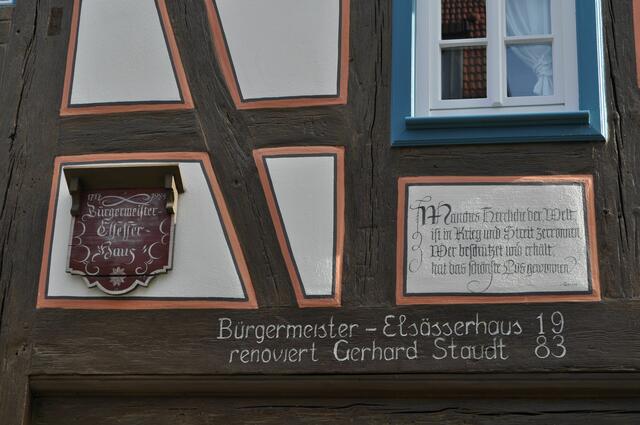 Bürgermeister-
Elsesser-
Haus
Manches Herrliche der Welt
ist in Krieg und Streit zerronnen
Wer beschützet und erhält,
hat das schönste Los gewonnen
Bürgermeister – Elsässerhaus 19
renoviert Gerhard Staudt 83